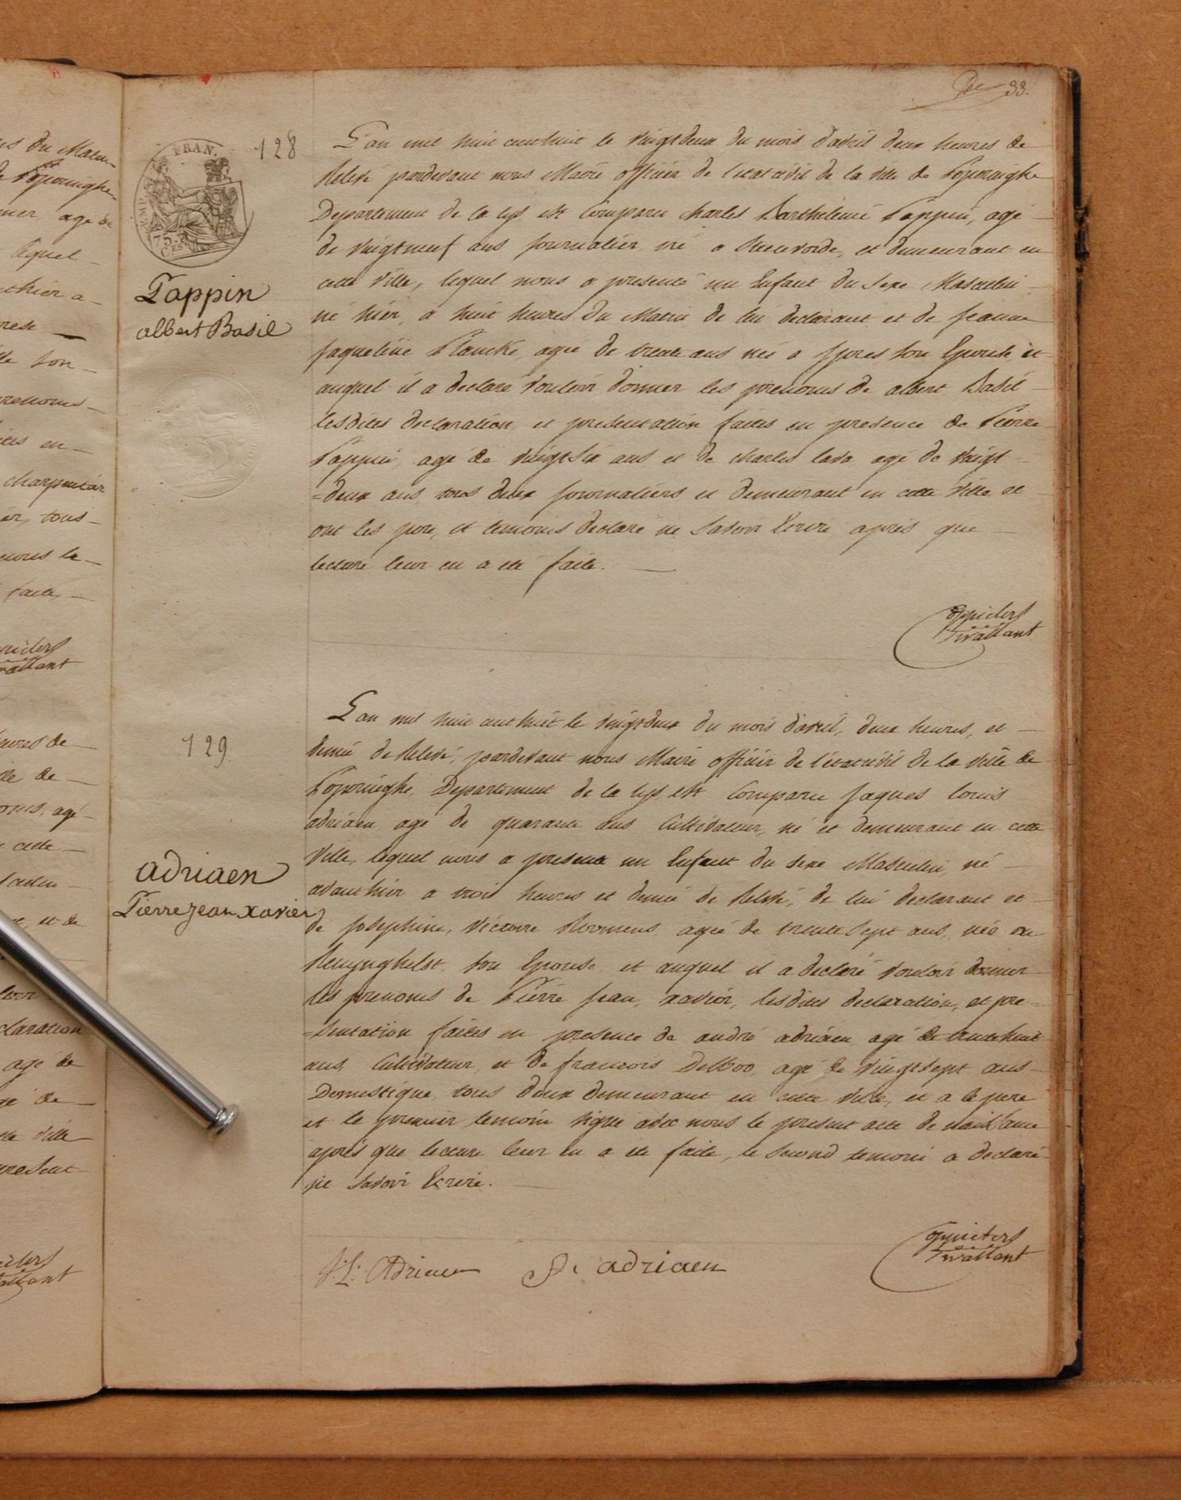 s du Matin
Poperinghe
agé de
lequel
thier a
son
prenoms
charpentier
tous
heures de
faite
33.
128
FRAN.
75
Tappin
albert Basil
L'an mil huit cent huit le vingtdeux du mois d'avril deux heures de
Relevé pardevant nous Maire officier de l'etat civil de la ville de Poperinghe
Departement de la Lys est Comparu Charles Barthélémé Tappin, agé
de vingtneuf ans journalier né a Steenvorde, et demeurant en
cette Ville, lequel nous a presenté un Enfant du Sexe Masculin,
né hier, a huit heures du Matin de lui declarant et de jeanne
jaqueline Plancke, agée de trente ans née a Ypres son Epouse et
auquel il a declaré vouloir donner les prenoms de albert Basil
lesdites declaration et presentation faites en presence de Pierre
Tappin, age de vingtsix ans et de charles age de vingt
=deux ans, tous deux journaliers et demeurant en cette Ville et
ont les pere, et temoins declaré ne Savoir Ecrire après que
lecture leur en a été faite.
129
adriaen
Pierre jean xavier
L'an mil huit cent huit le vingtdeux du mois d'avril, deux heures, et
demie de Relevé, pardevant nous Maire officier de l'etat civil de la Ville de
Poperinghe, Departement de la Lys est Comparu jaques Louis
adriaen agé de quarante ans Cultivateur, né et demeurant en cette
Ville, lequel nous a presenté un Enfant du sexe Masculin, né
avant hier a trois heures et demie de Relevé, de lui declarant et
de josephine, Victoire agée de trente sept ans, née au
Reninghelst son Epouse, et auquel il a declaré vouloir donner
les prenoms de Pierre jean, xavier, lesdites declaration, et pre=
=sentation faites en presence de andré adriaen agé de trente huit
ans, Cultivateur, et de francois agé de vingtsept ans
Domestique tous deux demeurant en cette Ville, et a le pere
et le premier temoin signé avec nous le present acte de naissance
après que lecture leur en a été faite, le second temoin a declaré
ne Savoir Ecrire.
J: L: Adriaen adriaen